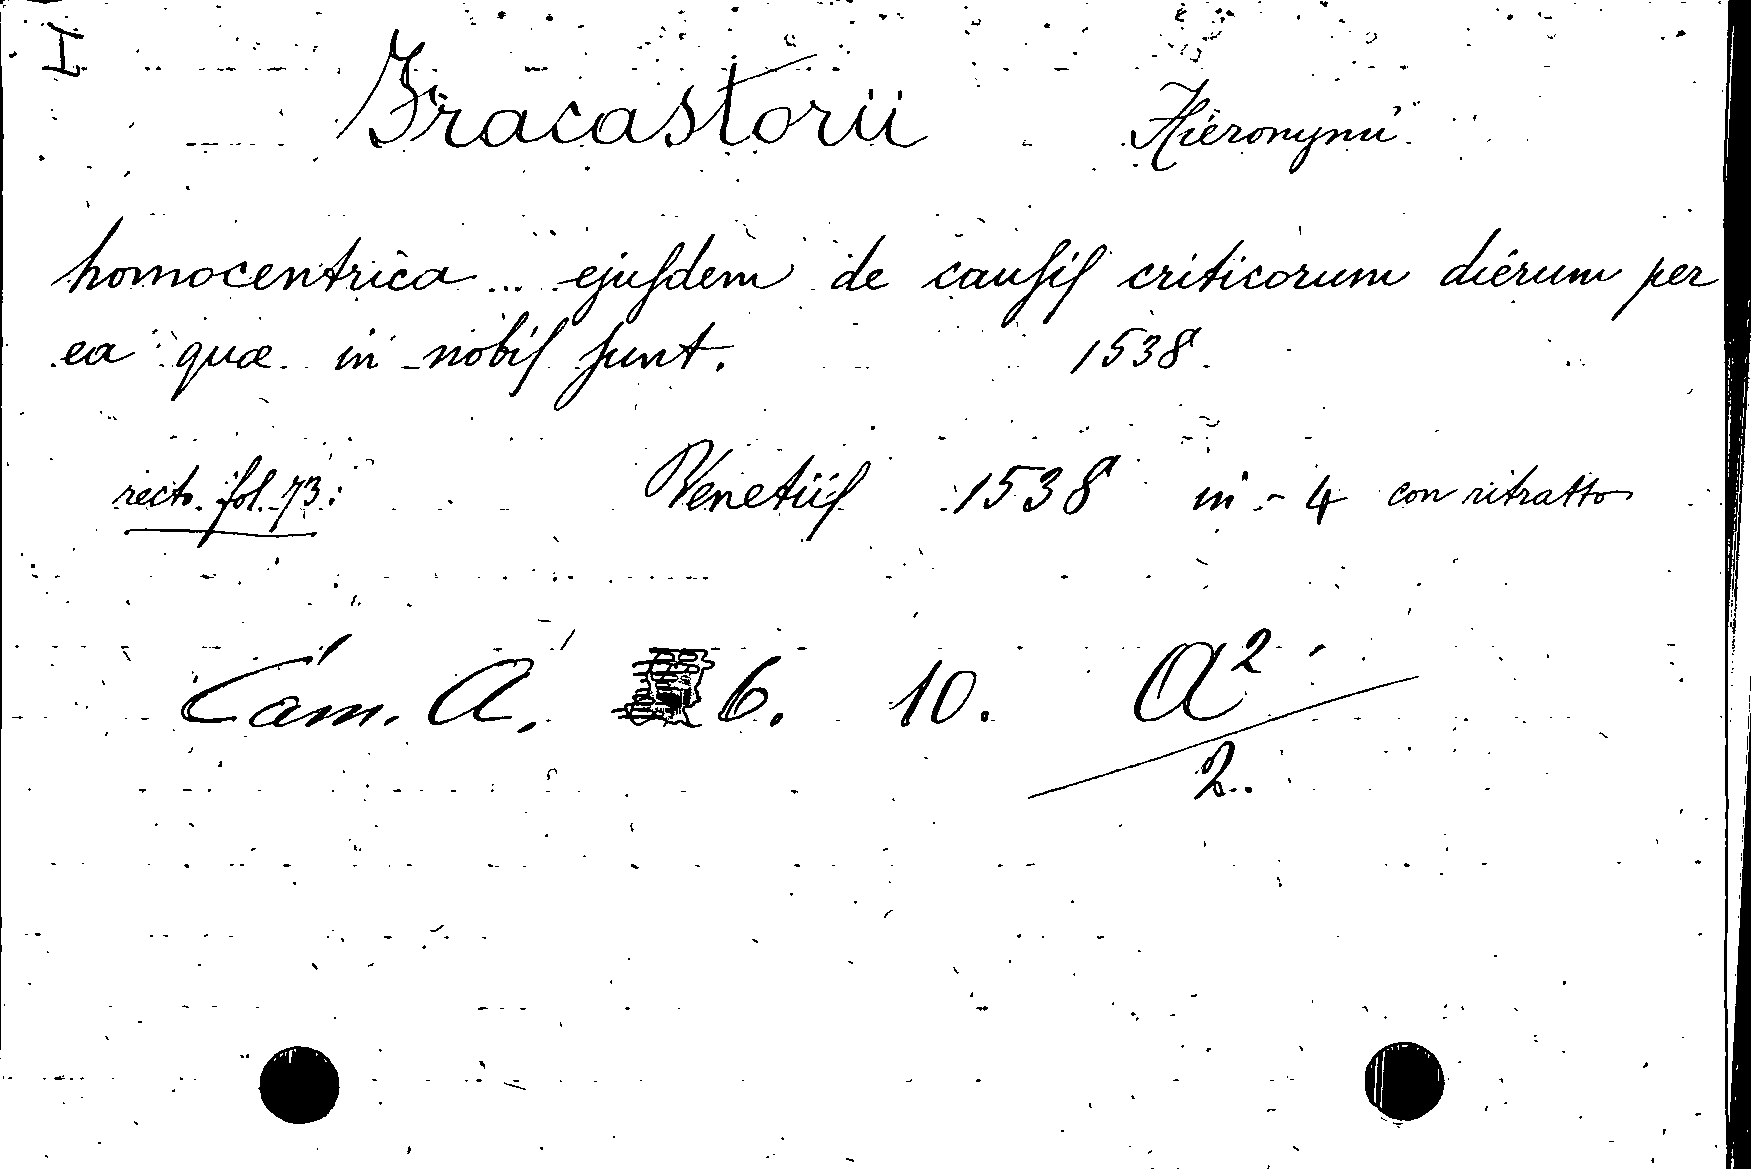 I
Fracastorii Hieronymi
homocentrica ... ejuſdem de cauſiſ criticorum dierum per
ea quæ in nobiſ ſunt. 1538.
recto. fol. 73: Venetiiſ 1538 in - 4 con ritratto
Cam. A. 6. 10. A²/2.